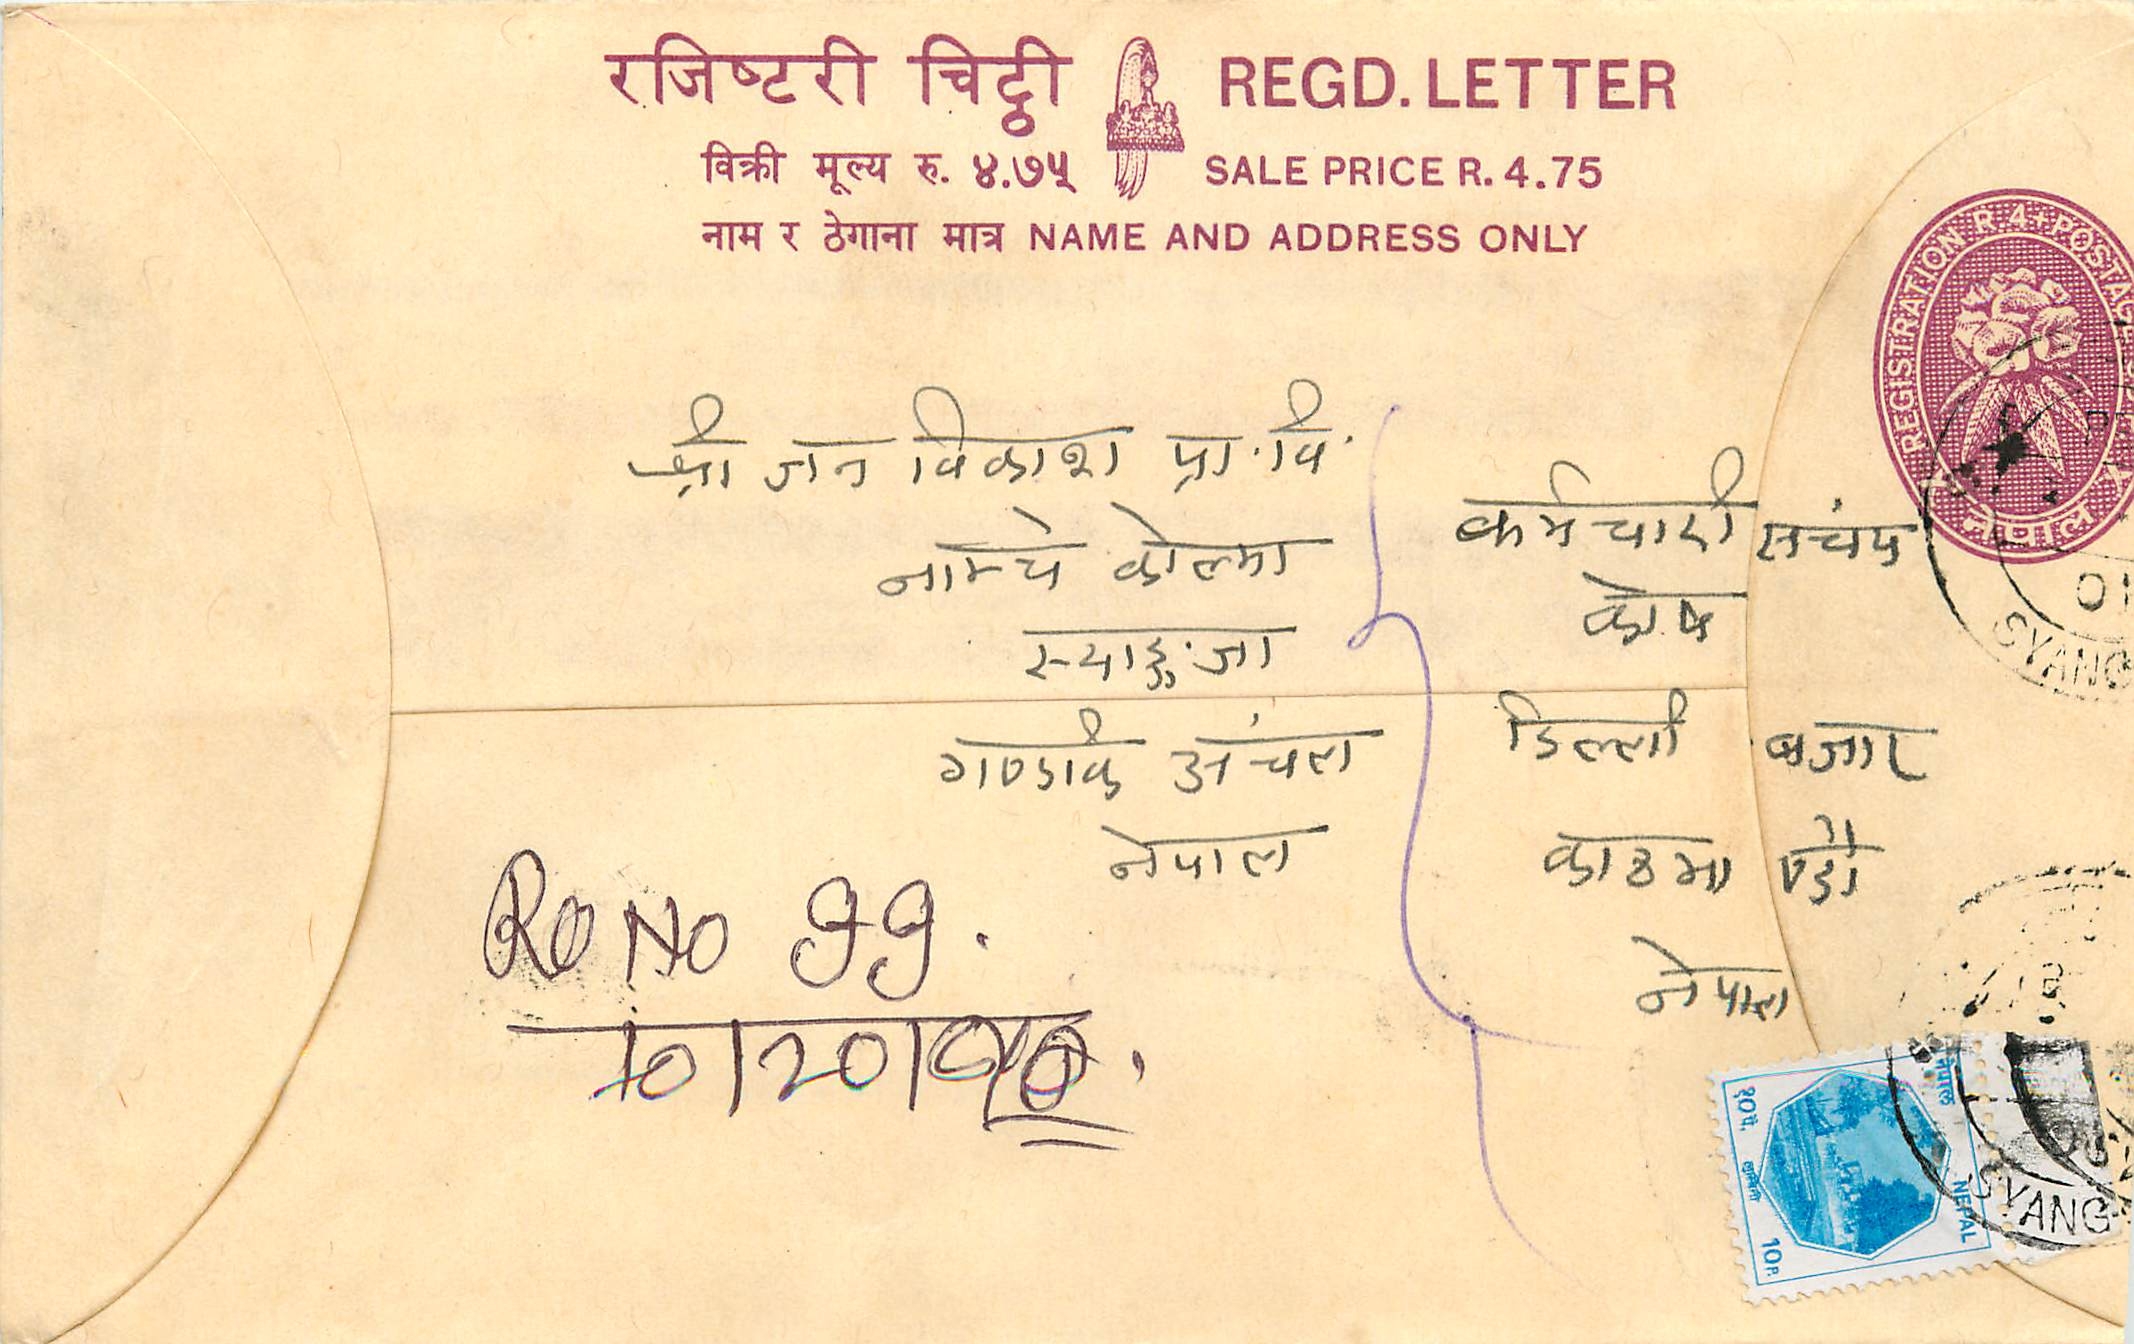 रजिष्टरी चिट्ठी REGD. LETTER
विक्री मूल्य रु. ४.७५ SALE PRICE R. 4.75
नाम र ठेगाना मात्र NAME AND ADDRESS ONLY
REGISTRATION R 4+POSTAGE
नेपाल
श्री जन विकाश प्रा.वि.
कोल्मा
स्याङ्जा
अंचल
नेपाल
कर्मचारी संचय
कोष
डिल्ली बजार
काठमाण्डौ
नेपाल
No ११.
SYANG
नेपाल NEPAL
१०पै. 10P.
SYANG